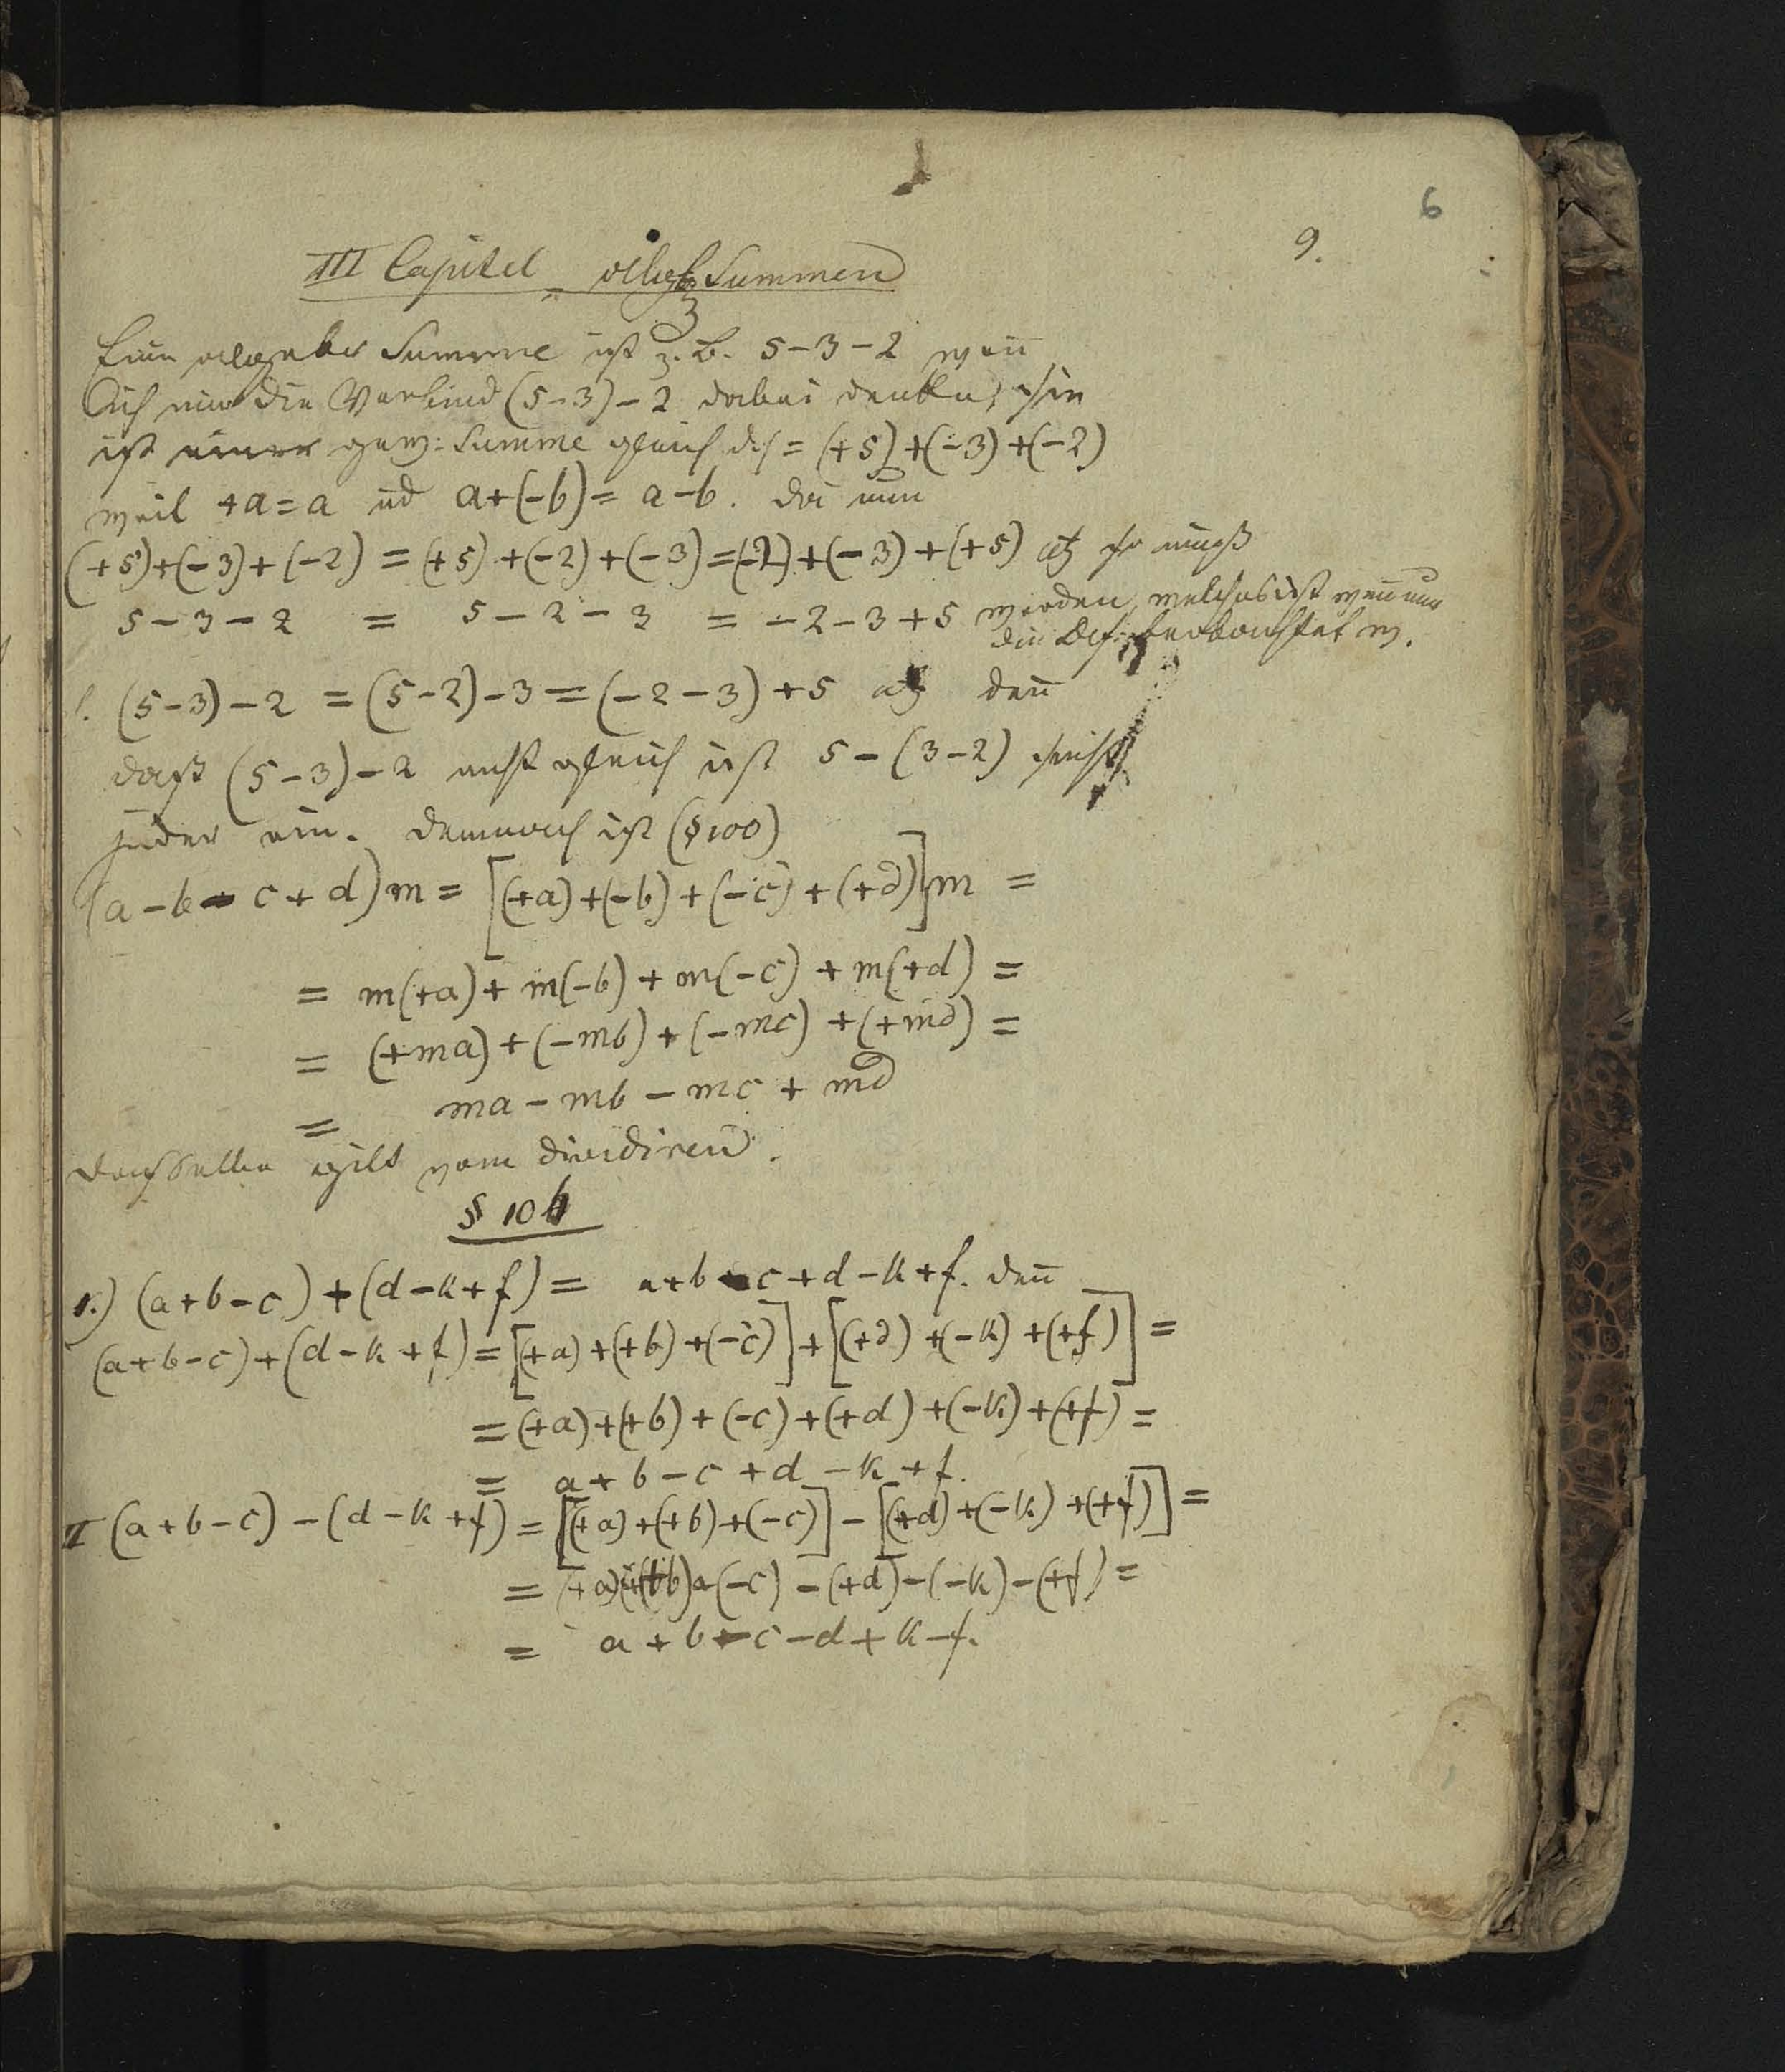 6
9.
III Capitel, Summen
Eine algebr Summe ist z. B. 5-3-2 wen̄
ich mir die Verbind (5-3)-2 dabei denke, sie
ist einer gem: Summe gleich = (+5)+(-3)+(-2)
weil +a=a ud a+(-b)= a-b. Da nun
(+5)+(-3)+(-2) = (+5)+(-2)+(-3)=(-2)+(-3)+(+5) so muß
5-3-2 = 5-2-3 = -2-3+5 werden, welches ist wen̄ nur
die Def. beobachtet w.
(5-3)-2 = (5-2)-3 = (-2-3)+5 den̄
daß (5-3)-2 nicht gleich ist 5-(3-2) sieht
jeder ein. Demnach ist (§100)
(a-b-c+d)m = [(+a)+(-b)+(-c)+(+d)]m =
= m(+a)+m(-b)+m(-c)+m(+d) =
= (+ma)+(-mb)+(-mc)+(+md) =
= ma-mb-mc+md
Dasselbe gilt vom dividiren.
§ 106
1.) (a+b-c)+(d-k+f) = a+b-c+d-k+f. den̄
(a+b-c)+(d-k+f) = [(+a)+(+b)+(-c)]+[(+d)+(-k)+(+f)] =
= (+a)+(+b)+(-c)+(+d)+(-k)+(+f) =
= a+b-c+d-k+f.
II (a+b-c)-(d-k+f) = [(+a)+(+b)+(-c)]-[(+d)+(-k)+(+f)] =
= (+a)+(+b)+(-c)-(+d)-(-k)-(+f) =
= a+b-c-d+k-f.